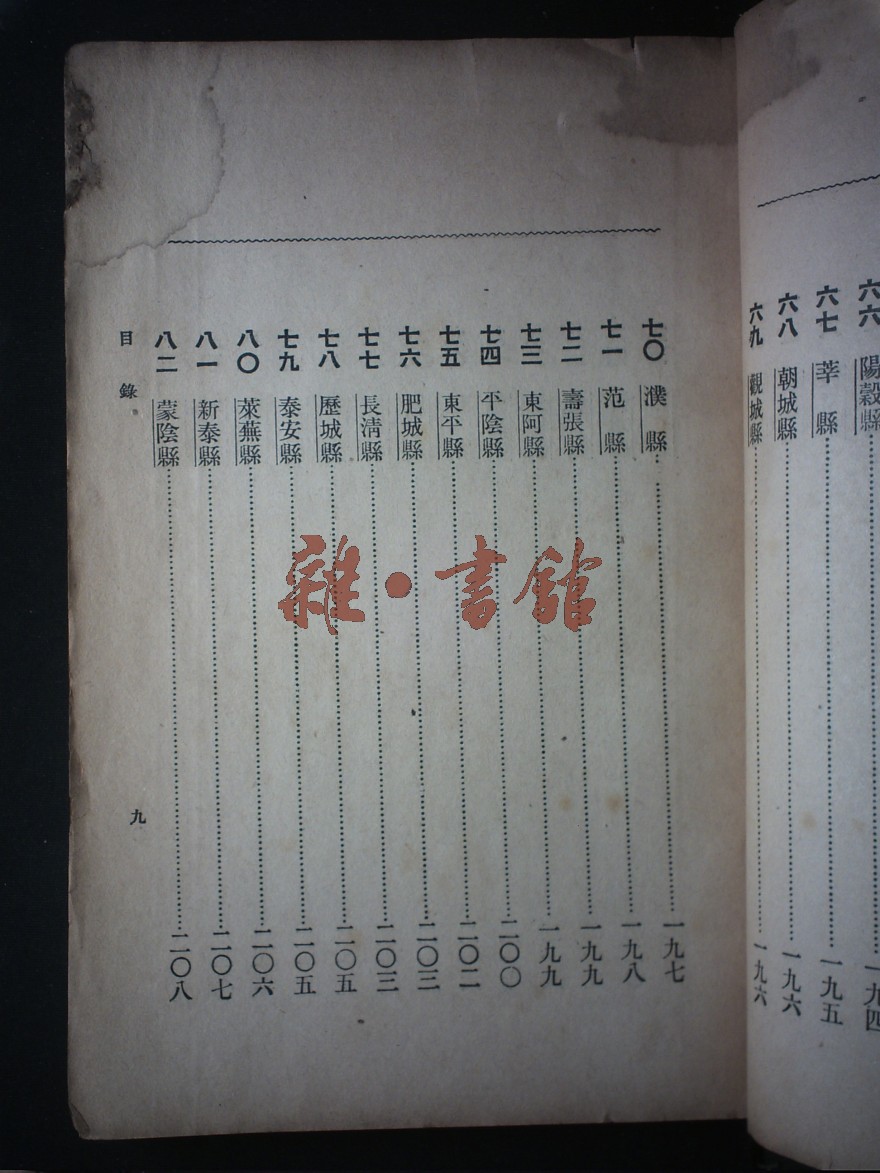 六六 陽穀縣 一九四
六七 莘縣 一九五
六八 朝城縣 一九六
六九 觀城縣 一九六
七〇 濮縣 一九七
七一 范縣 一九八
七二 壽張縣 一九九
七三 東阿縣 一九九
七四 平陰縣 二〇〇
七五 東平縣 二〇二
七六 肥城縣 二〇三
七七 長清縣 二〇三
七八 歷城縣 二〇五
七九 泰安縣 二〇五
八〇 萊蕪縣 二〇六
八一 新泰縣 二〇七
八二 蒙陰縣 二〇八
目錄 九
雜·書館